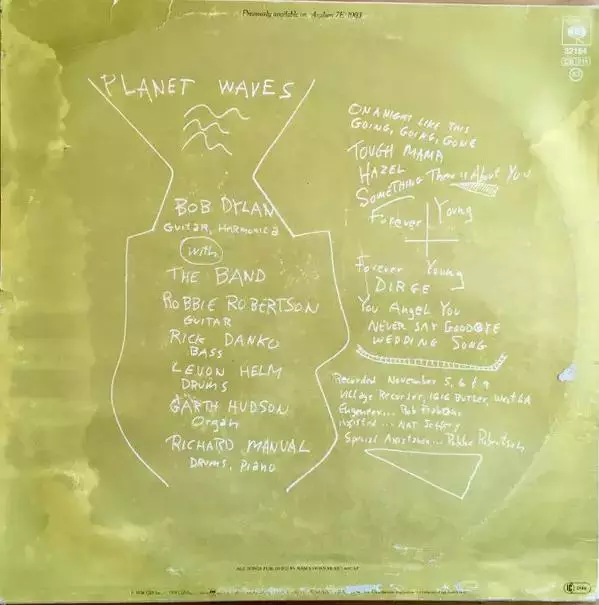 Previously available on Asylum 7E-1003
CBS
32154
PLANET WAVES
BOB DYLAN
GUITAR, HARMONICA
with
THE BAND
ROBBIE ROBERTSON
GUITAR
RICK DANKO
BASS
LEVON HELM
DRUMS
GARTH HUDSON
Organ
RICHARD MANUAL
DRUMS, Piano
ON A NIGHT LIKE THIS
GOING, GOING, GONE
TOUGH MAMA
HAZEL
SOMETHING There is About You
Forever Young
Forever Young
DIRGE
You Angel You
NEVER SAY GOODBYE
WEDDING SONG
Recorded November 5, 6 & 9
Village Recorder, 1616 Butler, West LA
Engineer... Rob
Assisted... NAT
Special Assistance... Robbie Robertson